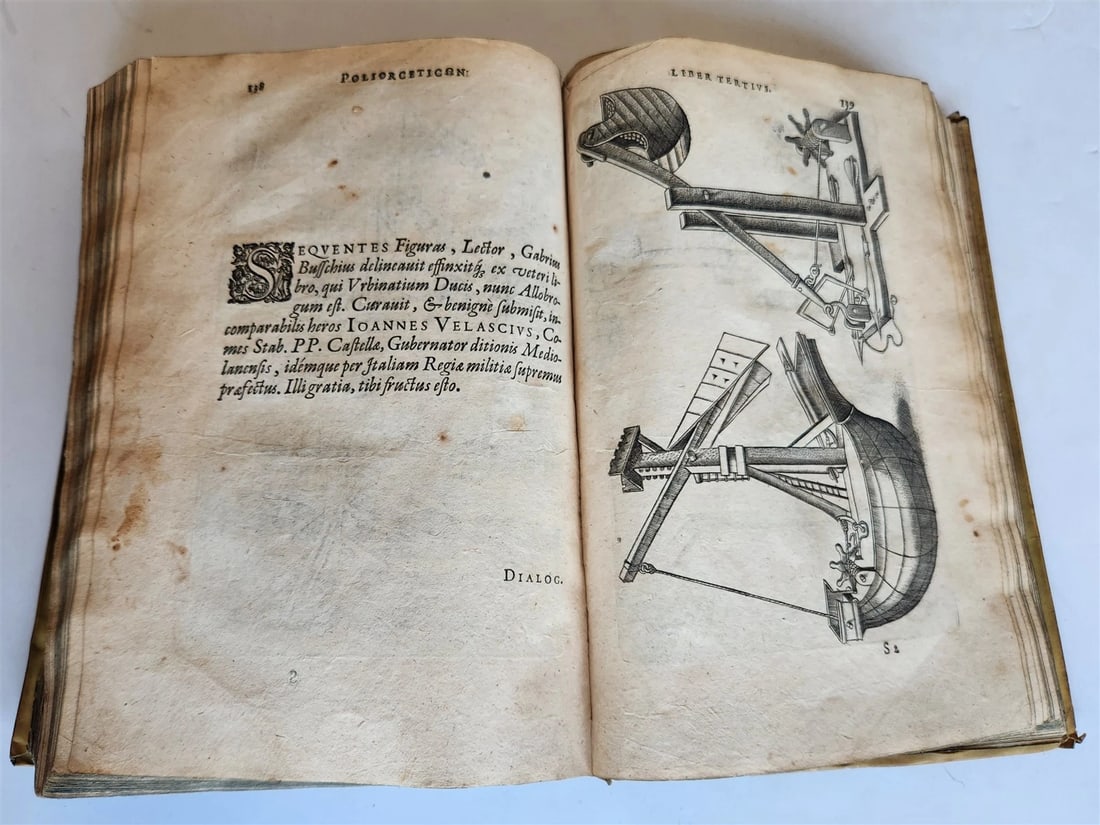 138 POLIORCETICΩN:
SEQVENTES Figuras, Lector, Gabrius
Busschius delineauit effinxitq́; ex veteri li-
bro, qui Vrbinatium Ducis, nunc Allobro-
gum est. Curauit, & benignè submisit, in-
comparabilis heros IOANNES VELASCIVS, Co-
mes Stab. PP. Castellæ, Gubernator ditionis Medio-
lanensis, idémque per Italiam Regiæ militiæ supremus
præfectus. Illi gratia, tibi fructus esto.
DIALOG.
LIBER TERTIVS. 139
S 2